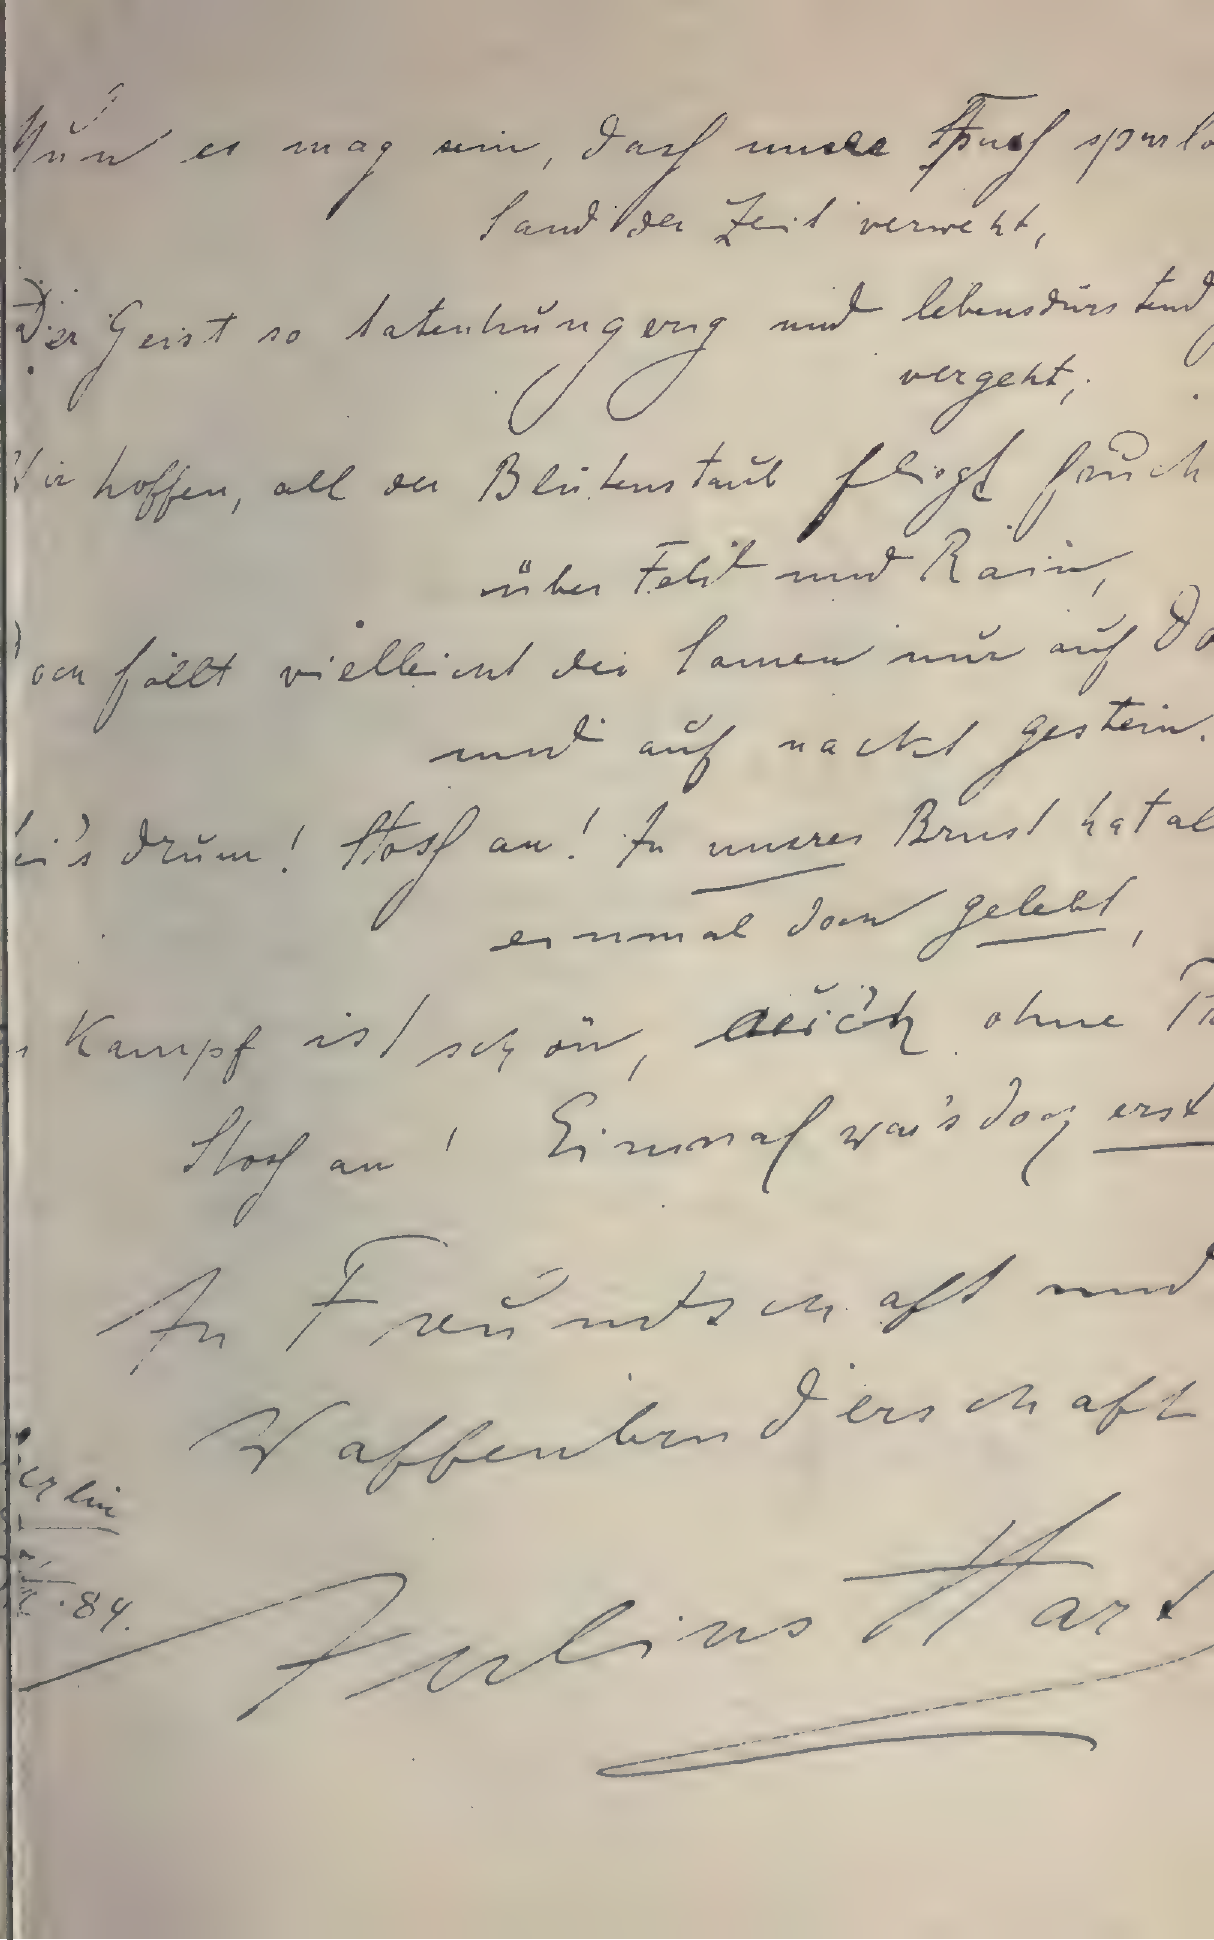 Nun es mag sein, dass unser Fuss spurlo
Sand der Zeit verweht,
Der Geist so tatenhungerig und lebensdürstend
vergeht;
Wir hoffen, all der Blütenstaub fliegt fruch
über Feld und Rain,
Doch fällt vielleicht der Samen nur auf Do
und auf nackt Gestein.
Sei's drum! Stoss an! In unsrer Brust hat al
einmal doch gelebt,
Kampf ist schön, auch ohne
Stoss an! Einmal war's doch erst
In Freundschaft und
Waffenbruderschaft
Berlin
84.
Julius Hart